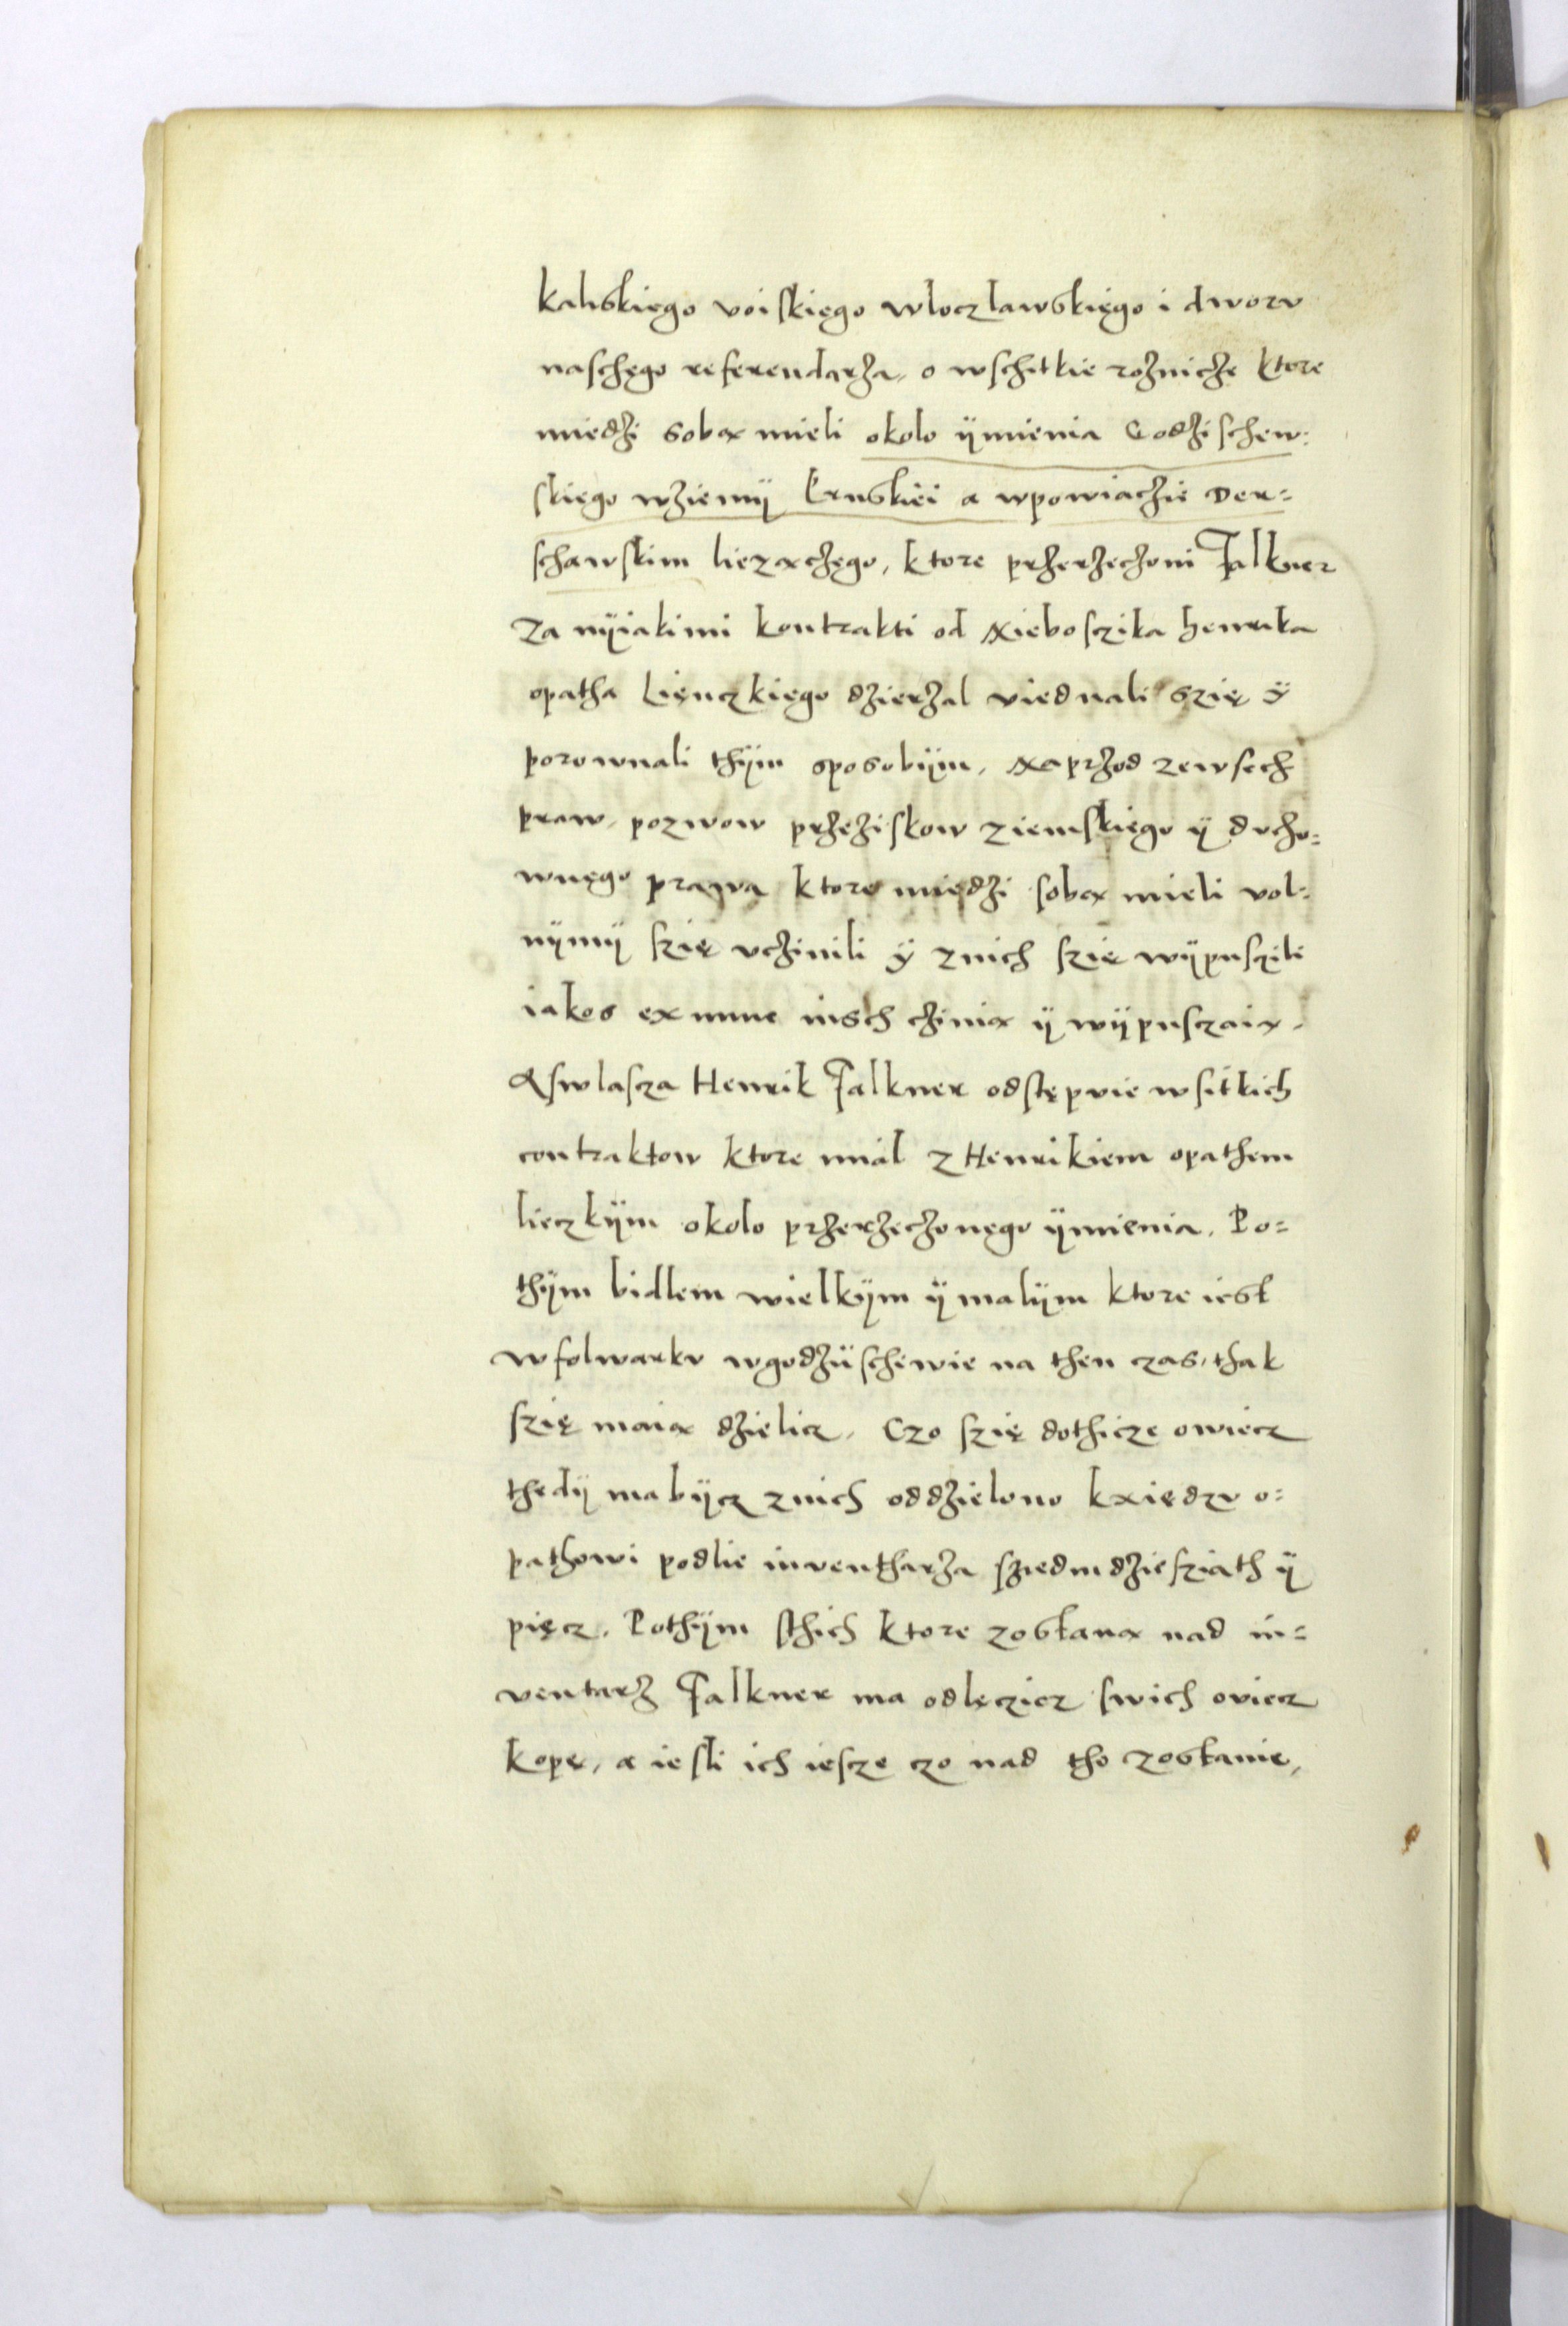 kaliskiego voiskięgo wloczlawskięgo i dworv
naschęgo referendarża, o wschitkie rożnicże ktore
miedżi sobą mieli okolo ÿmienia Godżischew=
skięgo wżiemÿ Ernskiéi a wpowiacżie Der=
schawskim liezącżęgo, ktore prżerżecżoni Falkner
Za nÿiakimi kontrakti od Nieboscżika Henrika
opatha Lięnczkięgo dżierżal viednali szię ÿ
porownali thÿm sposobÿm, Naprżod zewsech
praw, pozwow prżeżiskow ziemskięgo ÿ dvcho=
wnęgo prawa ktore międżi sobą mieli vol=
nÿmÿ szię vcżinili ÿ znich szię wÿpusczili
iakos ex nunc insch cżinią ÿ wÿpusczaią,
A swlascza Henrik Falkner odstępvie wsitkich
contraktow ktore mial z Henrikiem opathem
lieczkÿm okolo prżerżecżonęgo ÿmienia. Po=
thÿm bidlem wielkÿm ÿ malÿm ktore iest
w folwarkv wgodżischewie na then czas, thak
szię maią dżielicz, Czo szię dothicze owiecz
thedÿ ma bÿcz znich oddżielono kxiędzv o=
pathowi podlie inventharża sziedmdżiesziath ÿ
pięcz. Pothÿm sthich ktore zostaną nad in=
ventarż Falkner ma odlęczicz swich oviecz
kopę, a iesli ich iescze czo nad tho zostanie,